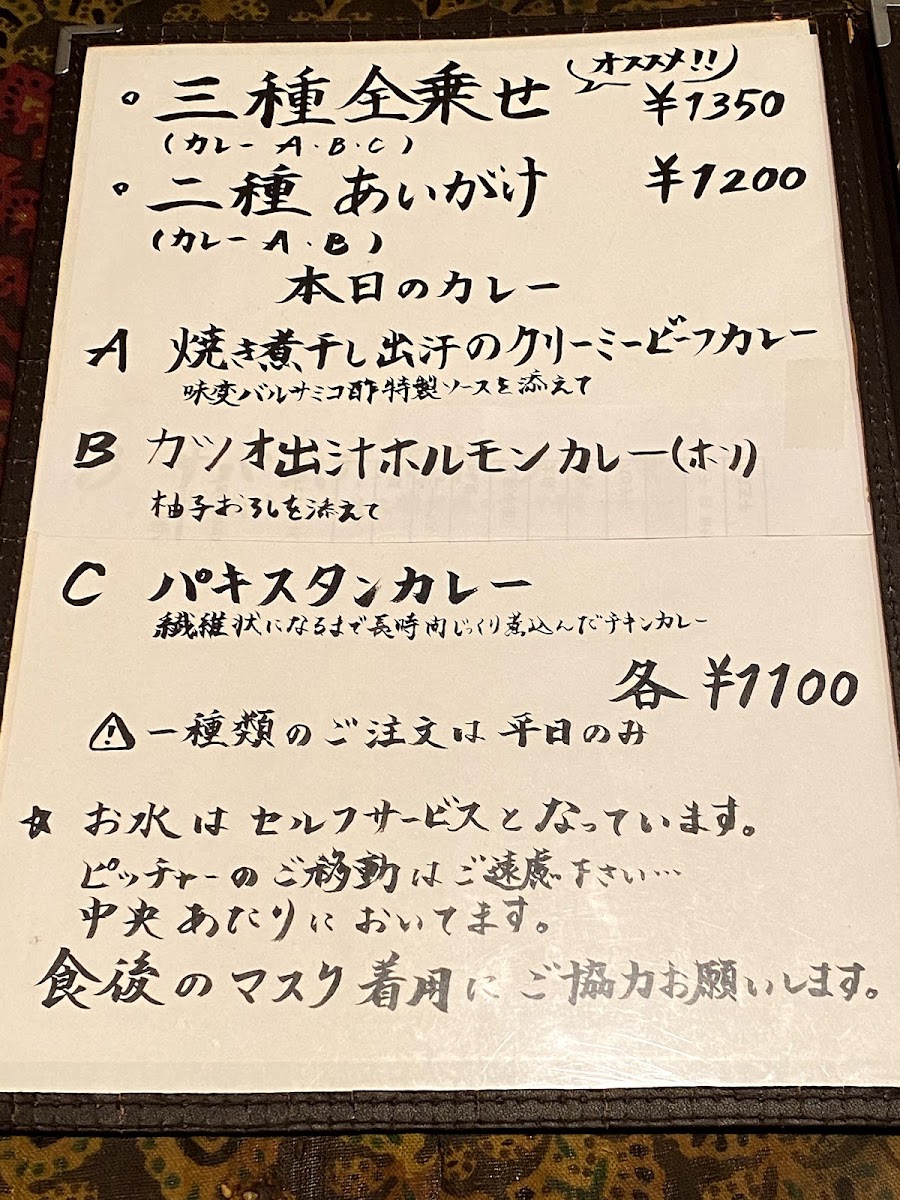 。三種全乗せ オススメ!! ¥1350
(カレー A・B・C)
。二種 あいがけ ¥1200
(カレー A・B)
本日のカレー
A 焼き煮干し出汁のクリーミービーフカレー
味変バルサミコ酢特製ソースを添えて
B カツオ出汁ホルモンカレー(ホソ)
柚子おろしを添えて
C パキスタンカレー
繊維状になるまで長時間じっくり煮込んだチキンカレー
各 ¥1100
⚠一種類のご注文は 平日のみ
☆ お水は セルフサービスとなっています。
ピッチャーのご移動はご遠慮下さい…
中央あたりにおいてます。
食後のマスク着用にご協力お願いします。